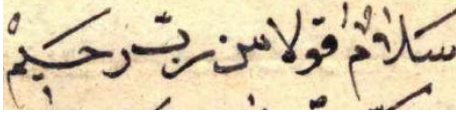 سلامٌ قولا من ربّ رحيم